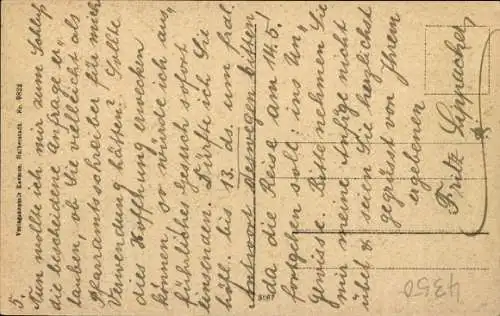 5.
Nun wollte ich mir zum Schluß
die bescheidene Anfrage er„
lauben, ob Sie vielleicht als
Pfarramtschreiber für mich
Verwendung hätten? Sollte
dies Hoffnung erwecken
können so würde ich aus„
führliches Gesuch sofort
einsenden. Dürfte ich Sie
höfl. bis 13. ds. um frdl.
Antwort deswegen bitten,
da die Reise am 14.5.
fortgehen soll ins Un„
gewisse. Bitte nehmen Sie
mir meine Anfrage nicht
übel & seien Sie herzlichst
gegrüsst von Ihrem
ergebenen
Fritz
Verlagsanstalt
No.
5167
4350